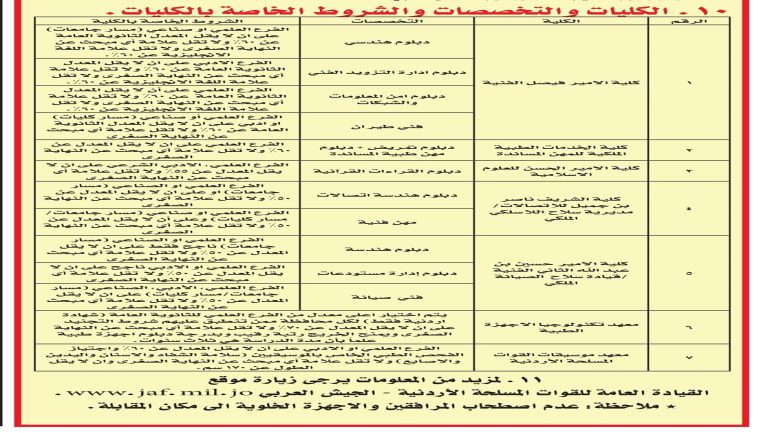 ١٠ - الكليات والتخصصات والشروط الخاصة بالكليات.
الرقم الكلية التخصصات الشروط الخاصة بالكلية
١ كلية الامير فيصل الفنية
دبلوم هندسي
الفرع العلمي او صناعي (مسار جامعات)
على ان لا يقل المعدل الثانوية العامة
عن ٦٠٪ ولا تقل علامة أي مبحث عن
النهاية الصغرى ولا تقل علامة اللغة
الانجليزية عن ٦٠٪.
دبلوم ادارة التزويد الفني
الفرع الادبي على ان لا يقل المعدل
الثانوية العامة عن ٦٠٪ ولا تقل علامة
أي مبحث عن النهاية الصغرى ولا تقل
علامة اللغة الانجليزية عن ٦٠٪.
دبلوم امن المعلومات
والشبكات
الفرع العلمي على ان لا يقل المعدل
الثانوية العامة عن ٦٠٪ ولا تقل علامة
أي مبحث عن النهاية الصغرى ولا تقل
علامة اللغة الانجليزية عن ٦٠٪.
فني طيران
الفرع العلمي او صناعي (مسار كليات)
او ادبي على ان لا يقل المعدل الثانوية
العامة عن ٦٠٪ ولا تقل علامة أي مبحث
عن النهاية الصغرى
٢ كلية الخدمات الطبية
الملكية للمهن المساندة
دبلوم تمريض + دبلوم
مهن طبية المساندة
الفرع العلمي على ان لا يقل المعدل عن
٦٠٪ ولا تقل علامة أي مبحث عن النهاية
الصغرى
٣ كلية الامير الحسن للعلوم
الاسلامية
دبلوم القراءات القرآنية
الفرع العلمي، الادبي الشرعي على ان لا
يقل المعدل عن ٥٥٪ ولا تقل علامة أي
مبحث عن النهاية الصغرى
٤ كلية الشريف ناصر
بن جميل للاتصالات/
مديرية سلاح اللاسلكي
الملكي
دبلوم هندسة اتصالات
الفرع العلمي او الصناعي (مسار
جامعات) او على ان لا يقل المعدل عن
٥٠٪ ولا تقل علامة أي مبحث عن النهاية
الصغرى
مهن فنية
الفرع العلمي او صناعي (مسار جامعات/
مسار كليات) و على ان لا يقل المعدل عن
٥٠٪ ولا تقل علامة أي مبحث عن النهاية
الصغرى
٥ كلية الامير حسين بن
عبد الله الثاني الفنية
/قيادة سلاح الصيانة
الملكي
دبلوم هندسة
الفرع العلمي او الصناعي (مسار
جامعات) ناجح فقط على ان لا يقل
المعدل عن ٥٠٪ ولا تقل علامة أي مبحث
عن النهاية الصغرى
دبلوم إدارة مستودعات
الفرع العلمي او الادبي ناجح على ان لا
يقل المعدل عن ٥٠٪ ولا تقل علامة أي
مبحث عن النهاية الصغرى
فني صيانة
الفرع العلمي، الادبي، الصناعي (مسار
جامعات/مسار كليات) على ان لا يقل
المعدل عن ٥٠٪ ولا تقل علامة أي مبحث
عن النهاية الصغرى
٦ معهد تكنولوجيا الاجهزة
الطبية
يتم اختيار اعلى معدل من الفرع العلمي للثانوية العامة (شهادة
اردنية فقط) لكل محافظة ممن تنطبق عليهم شروط التجنيد
على ان لا يقل المعدل عن ٧٠٪ ولا تقل علامة أي مبحث عن النهاية
الصغرى ويمنح الخريج رتبة رقيب وبدرجة دبلوم اجهزة طبية
علماً بأن مدة الدراسة هي ثلاث سنوات.
٧ معهد موسيقات القوات
المسلحة الاردنية
الفرع العلمي او الادبي على ان لا يقل المعدل عن ٥٠٪ واجتياز
الفحص الطبي الخاص بالموسيقيين (سلامة الشفاه والاسنان واليدين
والاصابع) ولا تقل علامة أي مبحث عن النهاية الصغرى وان لا يقل
الطول عن ١٧٠ سم.
١١ - لمزيد من المعلومات يرجى زيارة موقع
القيادة العامة للقوات المسلحة الأردنية - الجيش العربي www.jaf.mil.jo .
* ملاحظة: عدم اصطحاب المرافقين والاجهزة الخلوية الى مكان المقابلة.